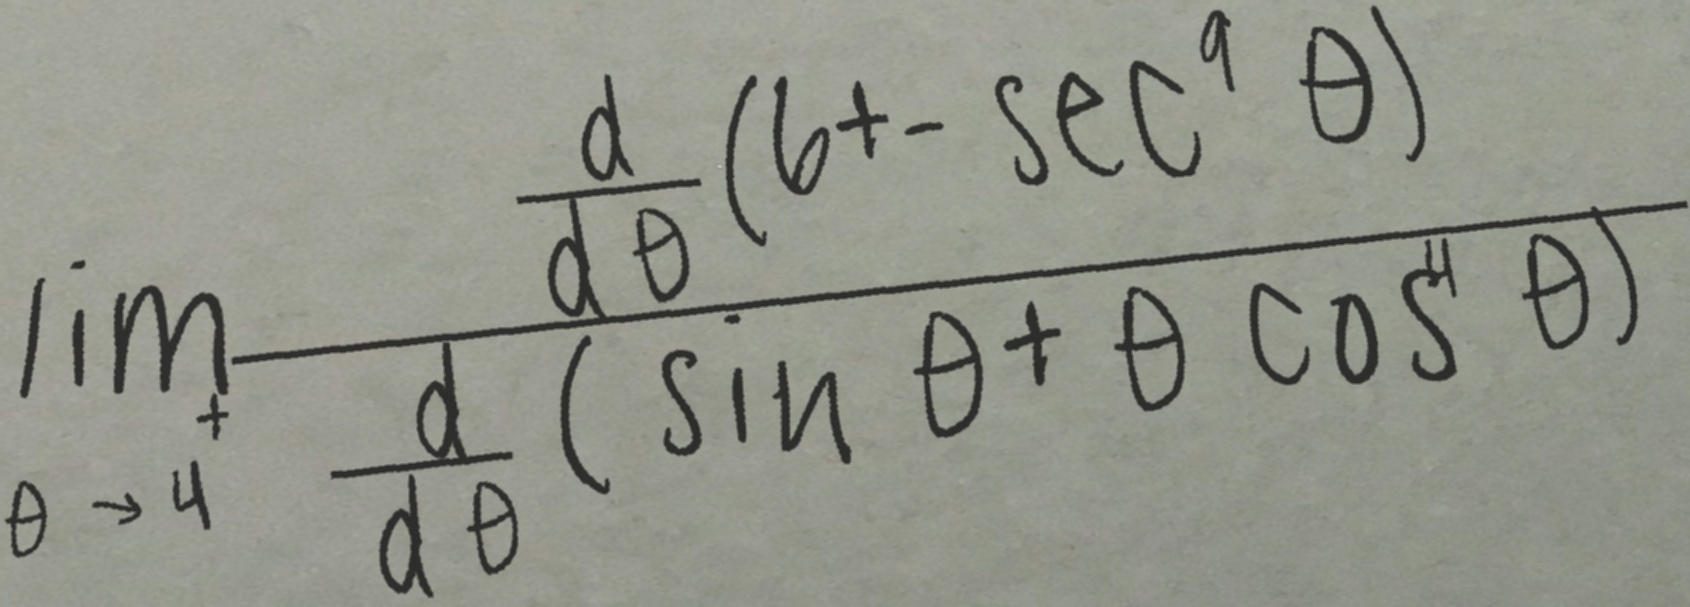 \lim_{\theta \to 4^+} \frac{\frac{d}{d\theta}(6+-\sec^9 \theta)}{\frac{d}{d\theta}(\sin \theta + \theta \cos^4 \theta)}